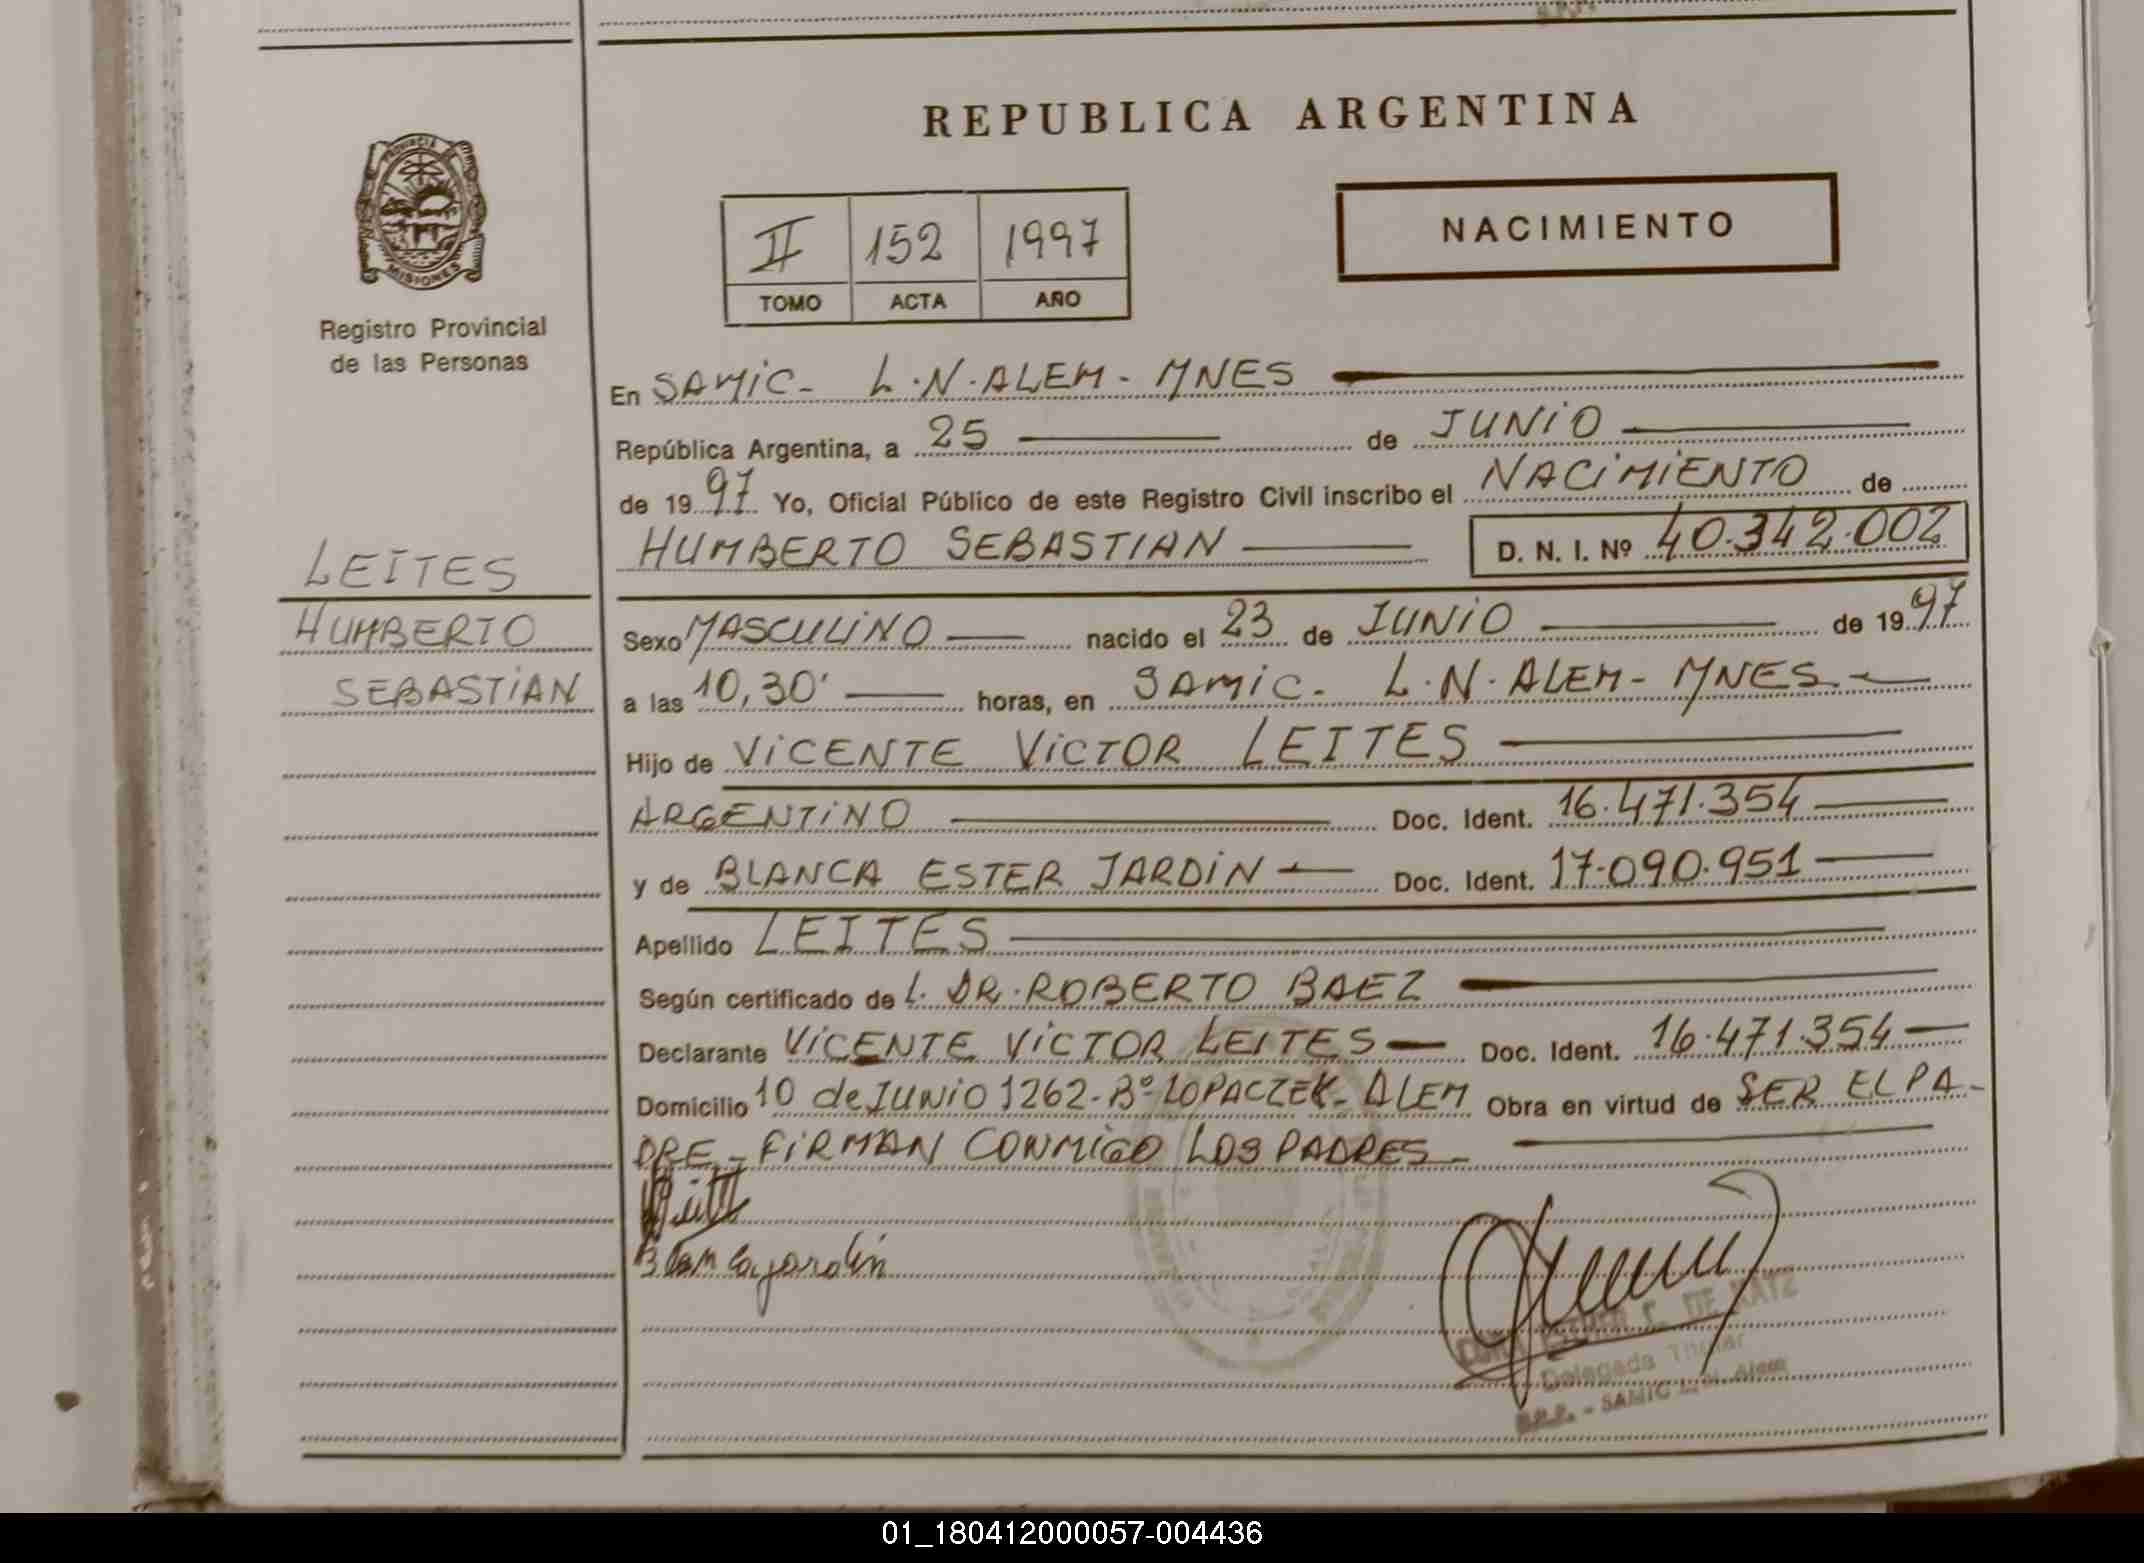 REPUBLICA ARGENTINA
PROVINCIA DE
MISIONES
Registro Provincial
de las Personas
II 152 1997
TOMO ACTA AÑO
NACIMIENTO
En SAMIC- L.N.ALEM- MNES
República Argentina, a 25 de JUNIO
de 1997 Yo, Oficial Público de este Registro Civil inscribo el NACIMIENTO de
HUMBERTO SEBASTIAN D. N. I. Nº 40.342.002
LEITES
HUMBERTO
SEBASTIAN
Sexo MASCULINO nacido el 23 de JUNIO de 1997
a las 10,30' horas, en SAMIC- L.N.ALEM- MNES-
Hijo de VICENTE VICTOR LEITES
ARGENTINO Doc. Ident. 16.471.354
y de BLANCA ESTER JARDIN Doc. Ident. 17.090.951
Apellido LEITES
Según certificado de l. DR. ROBERTO BAEZ
Declarante VICENTE VICTOR LEITES Doc. Ident. 16.471.354
Domicilio 10 de JUNIO 1262-Bº LOPACZEK-ALEM Obra en virtud de SER EL PA-
DRE-FIRMAN CONMIGO LOS PADRES-
Blanca jardin
C. DE KATZ
Delegada Titular
SAMIC L.N. Alem
01_180412000057-004436